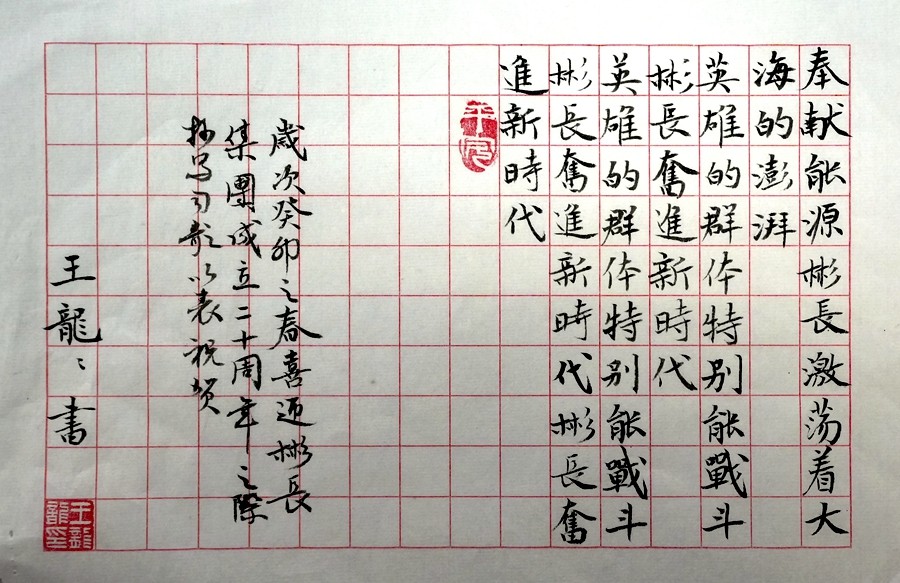 奉献能源彬長激荡着大
海的澎湃
英雄的群体特别能戰斗
彬長奮進新時代
英雄的群体特别能戰斗
彬長奮進新時代彬長奮
進新時代
平安
歲次癸卯之春喜迎彬長
集團成立二十周年之際
抄写司歌以表祝贺
王龍〻書
王龍
龍印